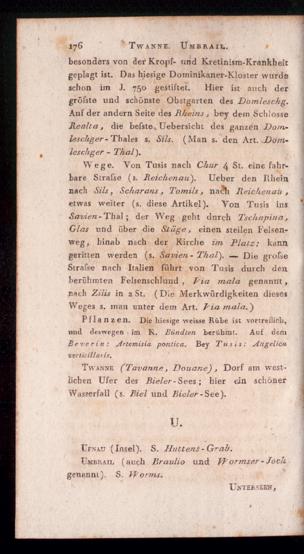 176 TWANNE. UMBRAIL.
besonders von der Kropf- und Kretinism-Krankheit
geplagt ist. Das hiesige Dominikaner-Kloster wurde
schon im J. 750 gestiftet. Hier ist auch der
gröfste und schönste Obstgarten des Domleschg.
Auf der andern Seite des Rheins, bey dem Schlosse
Realta, die befste Uebersicht des ganzen Dom-
leschger-Thales s. Sils. (Man s. den Art. Dom-
leschger-Thal).
Wege. Von Tusis nach Chur 4 St. eine fahr-
bare Strafse (s. Reichenau). Ueber den Rhein
nach Sils, Scharans, Tomils, nach Reichenau,
etwas weiter (s. diese Artikel). Von Tusis ins
Savien-Thal; der Weg geht durch Tschapina,
Glas und über die Stäge, einen steilen Felsen-
weg, hinab nach der Kirche im Platz: kann
geritten werden (s. Savien-Thal). — Die grofse
Strafse nach Italien führt von Tusis durch den
berühmten Felsenschlund, Via mala genannt,
nach Zilis in 2 St. (Die Merkwürdigkeiten dieses
Weges s. man unter dem Art. Via mala.)
Pflanzen. Die hiesige weisse Rübe ist vortreflich,
und deswegen im K. Bündten berühmt. Auf dem
Beverin: Artemisia pontica. Bey Tusis: Angelica
verticillaris.
TWANNE (Tavanne, Douane), Dorf am west-
lichen Ufer des Bieler-Sees; hier ein schöner
Wasserfall (s. Biel und Bieler-See).
U.
UFNAU (Insel). S. Huttens-Grab.
UMBRAIL (auch Braulio und Wormser-Joch
genannt). S. Worms.
UNTERSEEN,